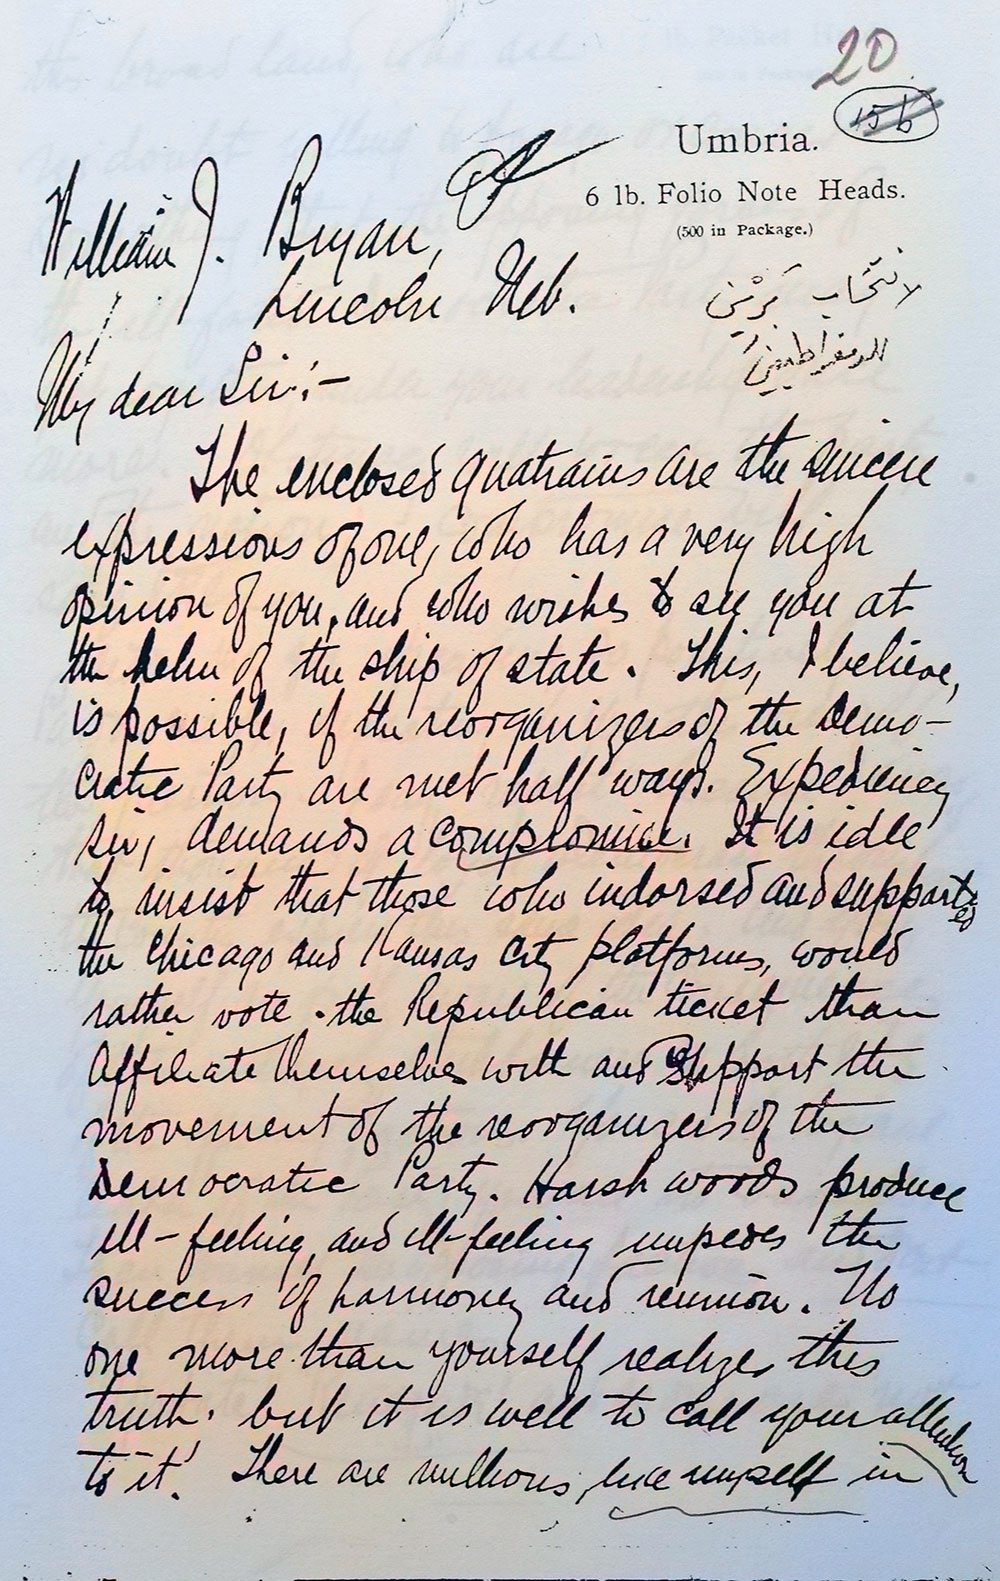 20
15b
Umbria.
6 lb. Folio Note Heads.
(500 in Package.)
William J. Bryan,
Lincoln Neb.
لانتخاب بَرْيَن
للدمقراطيين
My dear Sir:-
The enclosed quatrains are the sincere
expressions of one, who has a very high
opinion of you, and who wishes to see you at
the helm of the ship of state. This, I believe,
is possible, if the reorganizers of the Demo-
cratic Party are met half ways. Expediency
sir, demands a compromise. It is idle
to insist that those who indorsed and supported
the Chicago and Kansas City platforms, would
rather vote the Republican ticket than
affiliate themselves with and support the
movement of the reorganizers of the
Democratic Party. Harsh words produce
ill-feeling, and ill-feeling impedes the
success of harmony and reunion. No
one more than yourself realizes this
truth. but it is well to call your attention
to it! There are millions, like myself in